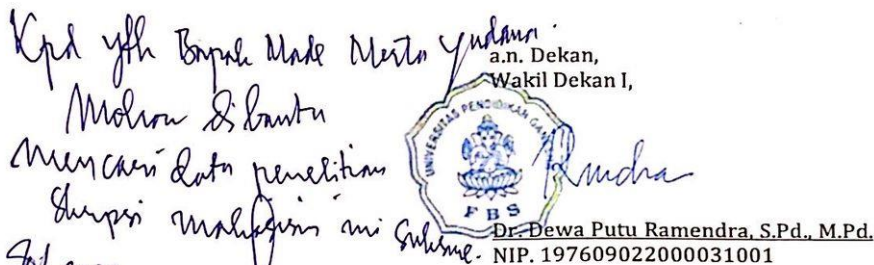 Kpd yth Bapak Made Merta Yudana.
Mohon dibantu
mencari data penelitian
skripsi mahasiswa ini Suksme.
a.n. Dekan,
Wakil Dekan I,
UNIVERSITAS PENDIDIKAN GAN
FBS
Dr. Dewa Putu Ramendra, S.Pd., M.Pd.
NIP. 197609022000031001